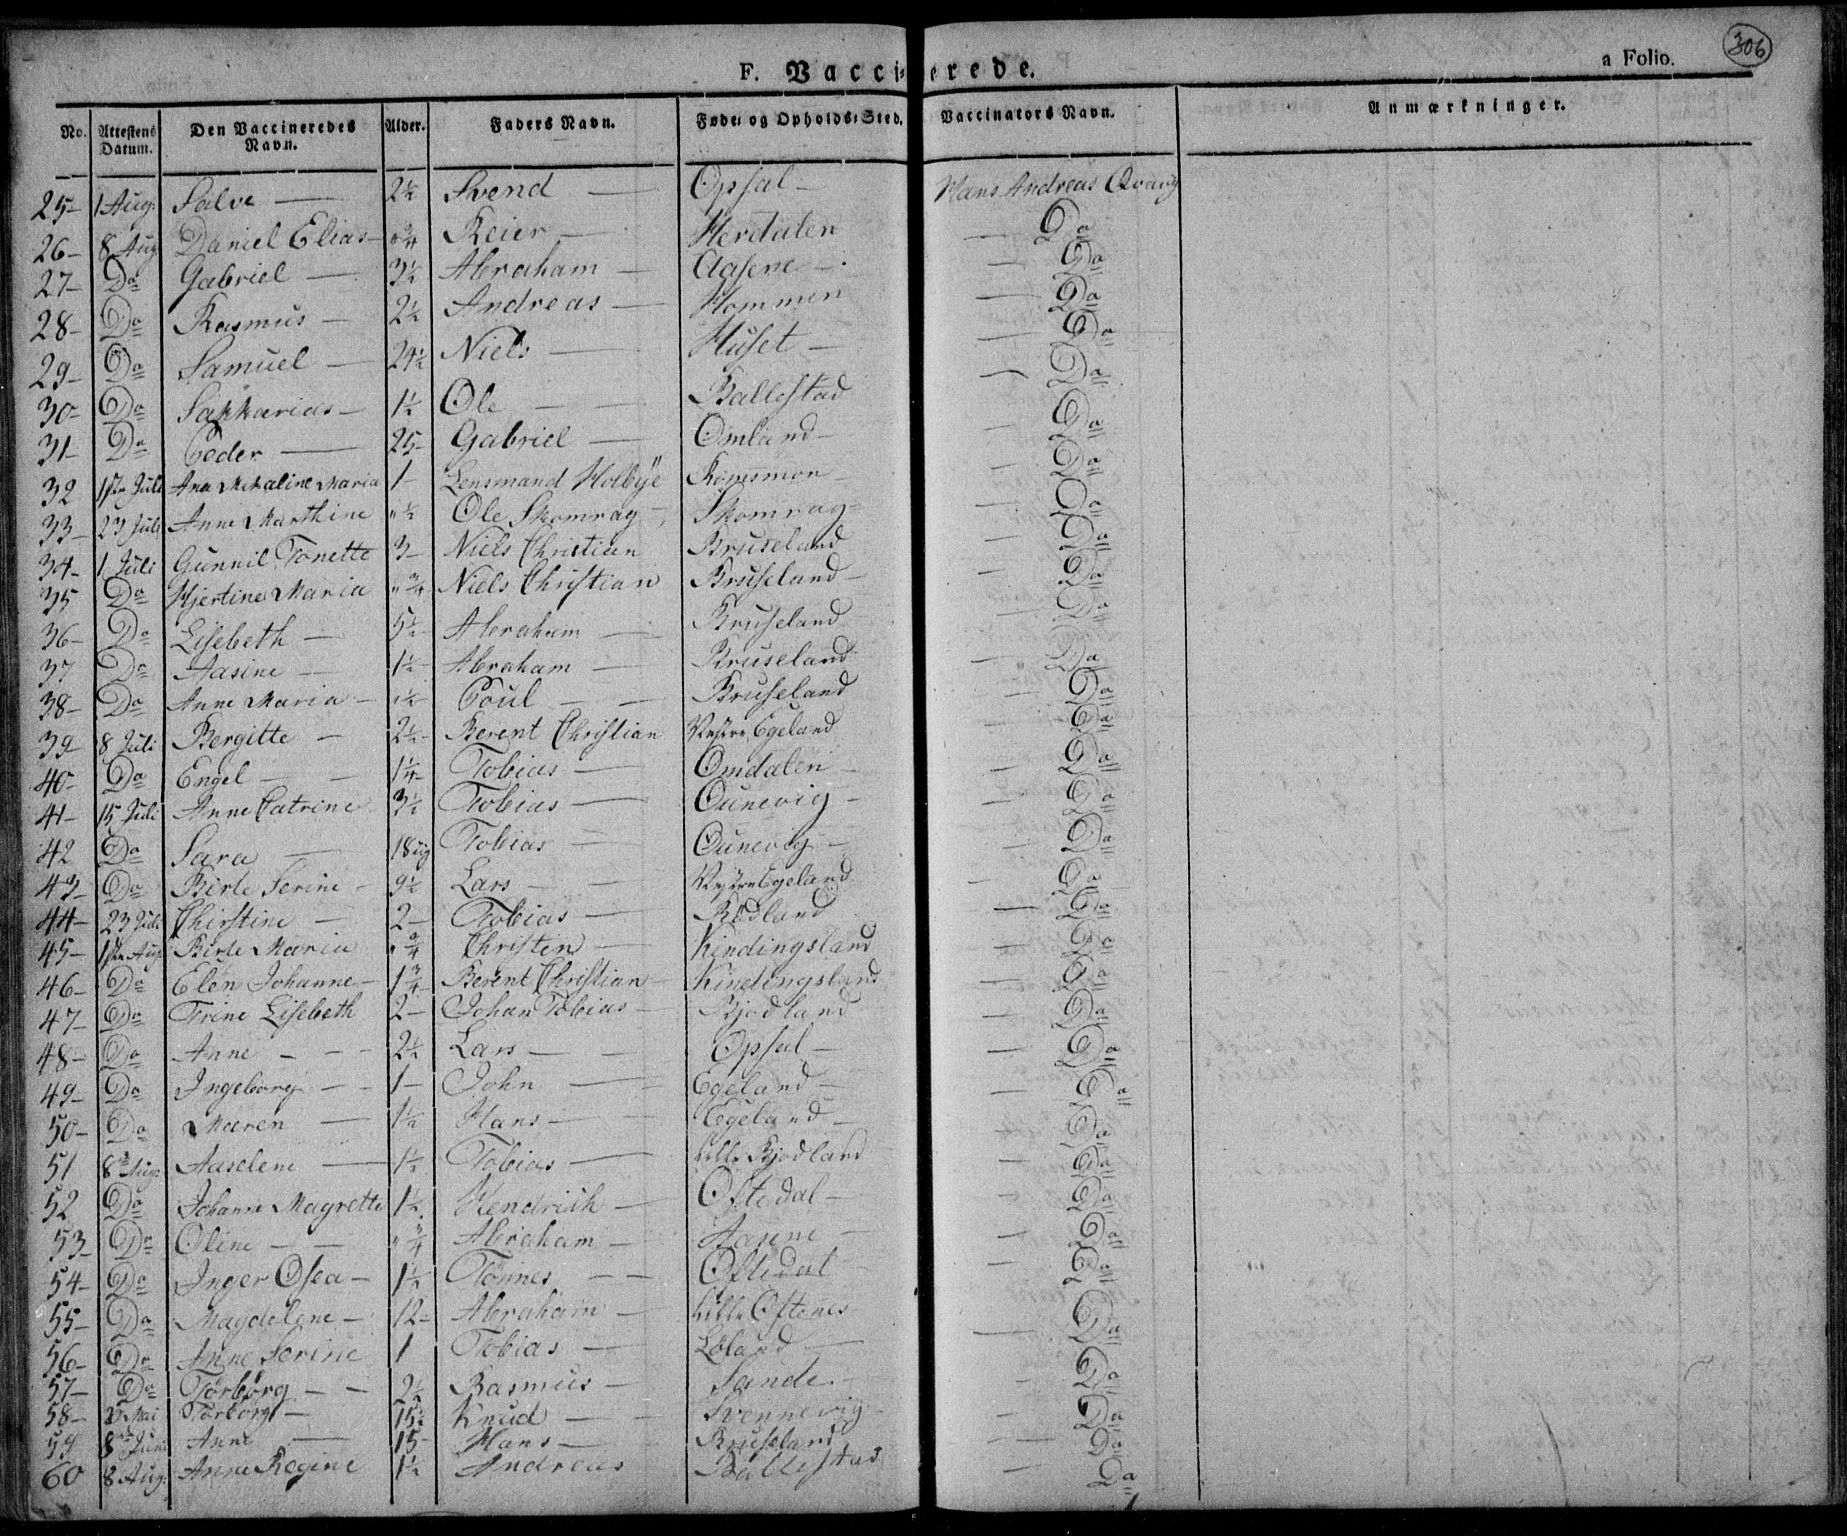 306
F. Vaccinerede. a Folio.
No. Attestens Datum. Den Vaccineredes Navn. Alder. Faders Navn. Føde- og Opholds-Sted. Vaccinators Navn. Anmærkninger.
25- 1 Aug. Salve — 2½ Svend — Opsal — Hans Andreas
26- 8 Aug Daniel Elias - "¾ Reier — Herdalen — Do
27- Do Gabriel — 3½ Abraham — Aasene — Do
28- Do Rasmus — 2½ Andreas — Hommen — Do
29- Do Samuel — 24½ Niels — Huset — Do
30- Do Sakkarias — 1½ Ole — Ballestad — Do
31- Do Peder — 25- Gabriel — Omland — Do
32 1ste Juli Ana Mikaline Maria 1- Lensmand Holbÿe — Do
33- 23 Juli Anne Marthine "½ Ole Skomrag - Skomrag - Do
34- 1 Juli Gunnil Tonette 3- Niels Christian Bruseland — Do
35 Do Hjertine Maria "¾ Niels Christian Bruseland — Do
36- Do Lisebeth — 5½ Abraham — Bruseland — Do
37 Do Aasine — 1½ Abraham — Bruseland — Do
38- Do Anne Maria - "½ Poul — Bruseland — Do
39 8 Juli Bergitte — 2½ Berent Christian Vestre Egeland — Do
40- Do Engel — 1¼ Tobias — Omdalen — Do
41- 15 Juli Anne Catrine 3½ Tobias — Ounevig — Do
42 Do Sara — 18 ug Tobias — Ounevig — Do
43- Do Birte Serine - 9½ Lars — Vestre Egeland — Do
44- 23 Juli Christine — 2- Tobias — Rødland — Do
45- 1ste Aug Birte Maria "¾ Christen — Kindingsland — Do
46- Do Elen Johanne - 1¾ Berent Christian — Kindingsland — Do
47- Do Trine Lisebeth 2- Johan Tobias — Bjodland — Do
48- Do Anne — 2½ Lars — Opsal — Do
49- Do Ingeborg — 1- John — Egeland — Do
50- Do Maren — 1½ Hans — Egeland — Do
51 8 Aug. Aaselene — 1½ Tobias — Lille Bjodland — Do
52 Do Johanne Magrette 1½ Hendrich — Oftedal — Do
53- Do Oline — "¾ Abraham — Aasene — Do
54- Do Inger Osea — 1½ Tönnes — Oftedal — Do
55- Do Magdelene — 12- Abraham — Lille Oftenes — Do
56- Do Anne Serine 1 Tobias — Løland — Do
57- Do Torborg — 2½ Rasmus — Sande — Do
58- Mai Torborg — 15½ Knud — Svennevig — Do
59 8 Juni Anne — 15- Hans — Bruseland — Do
60 8 Aug. Anne Regine 1½ Andreas Ballestad — Do